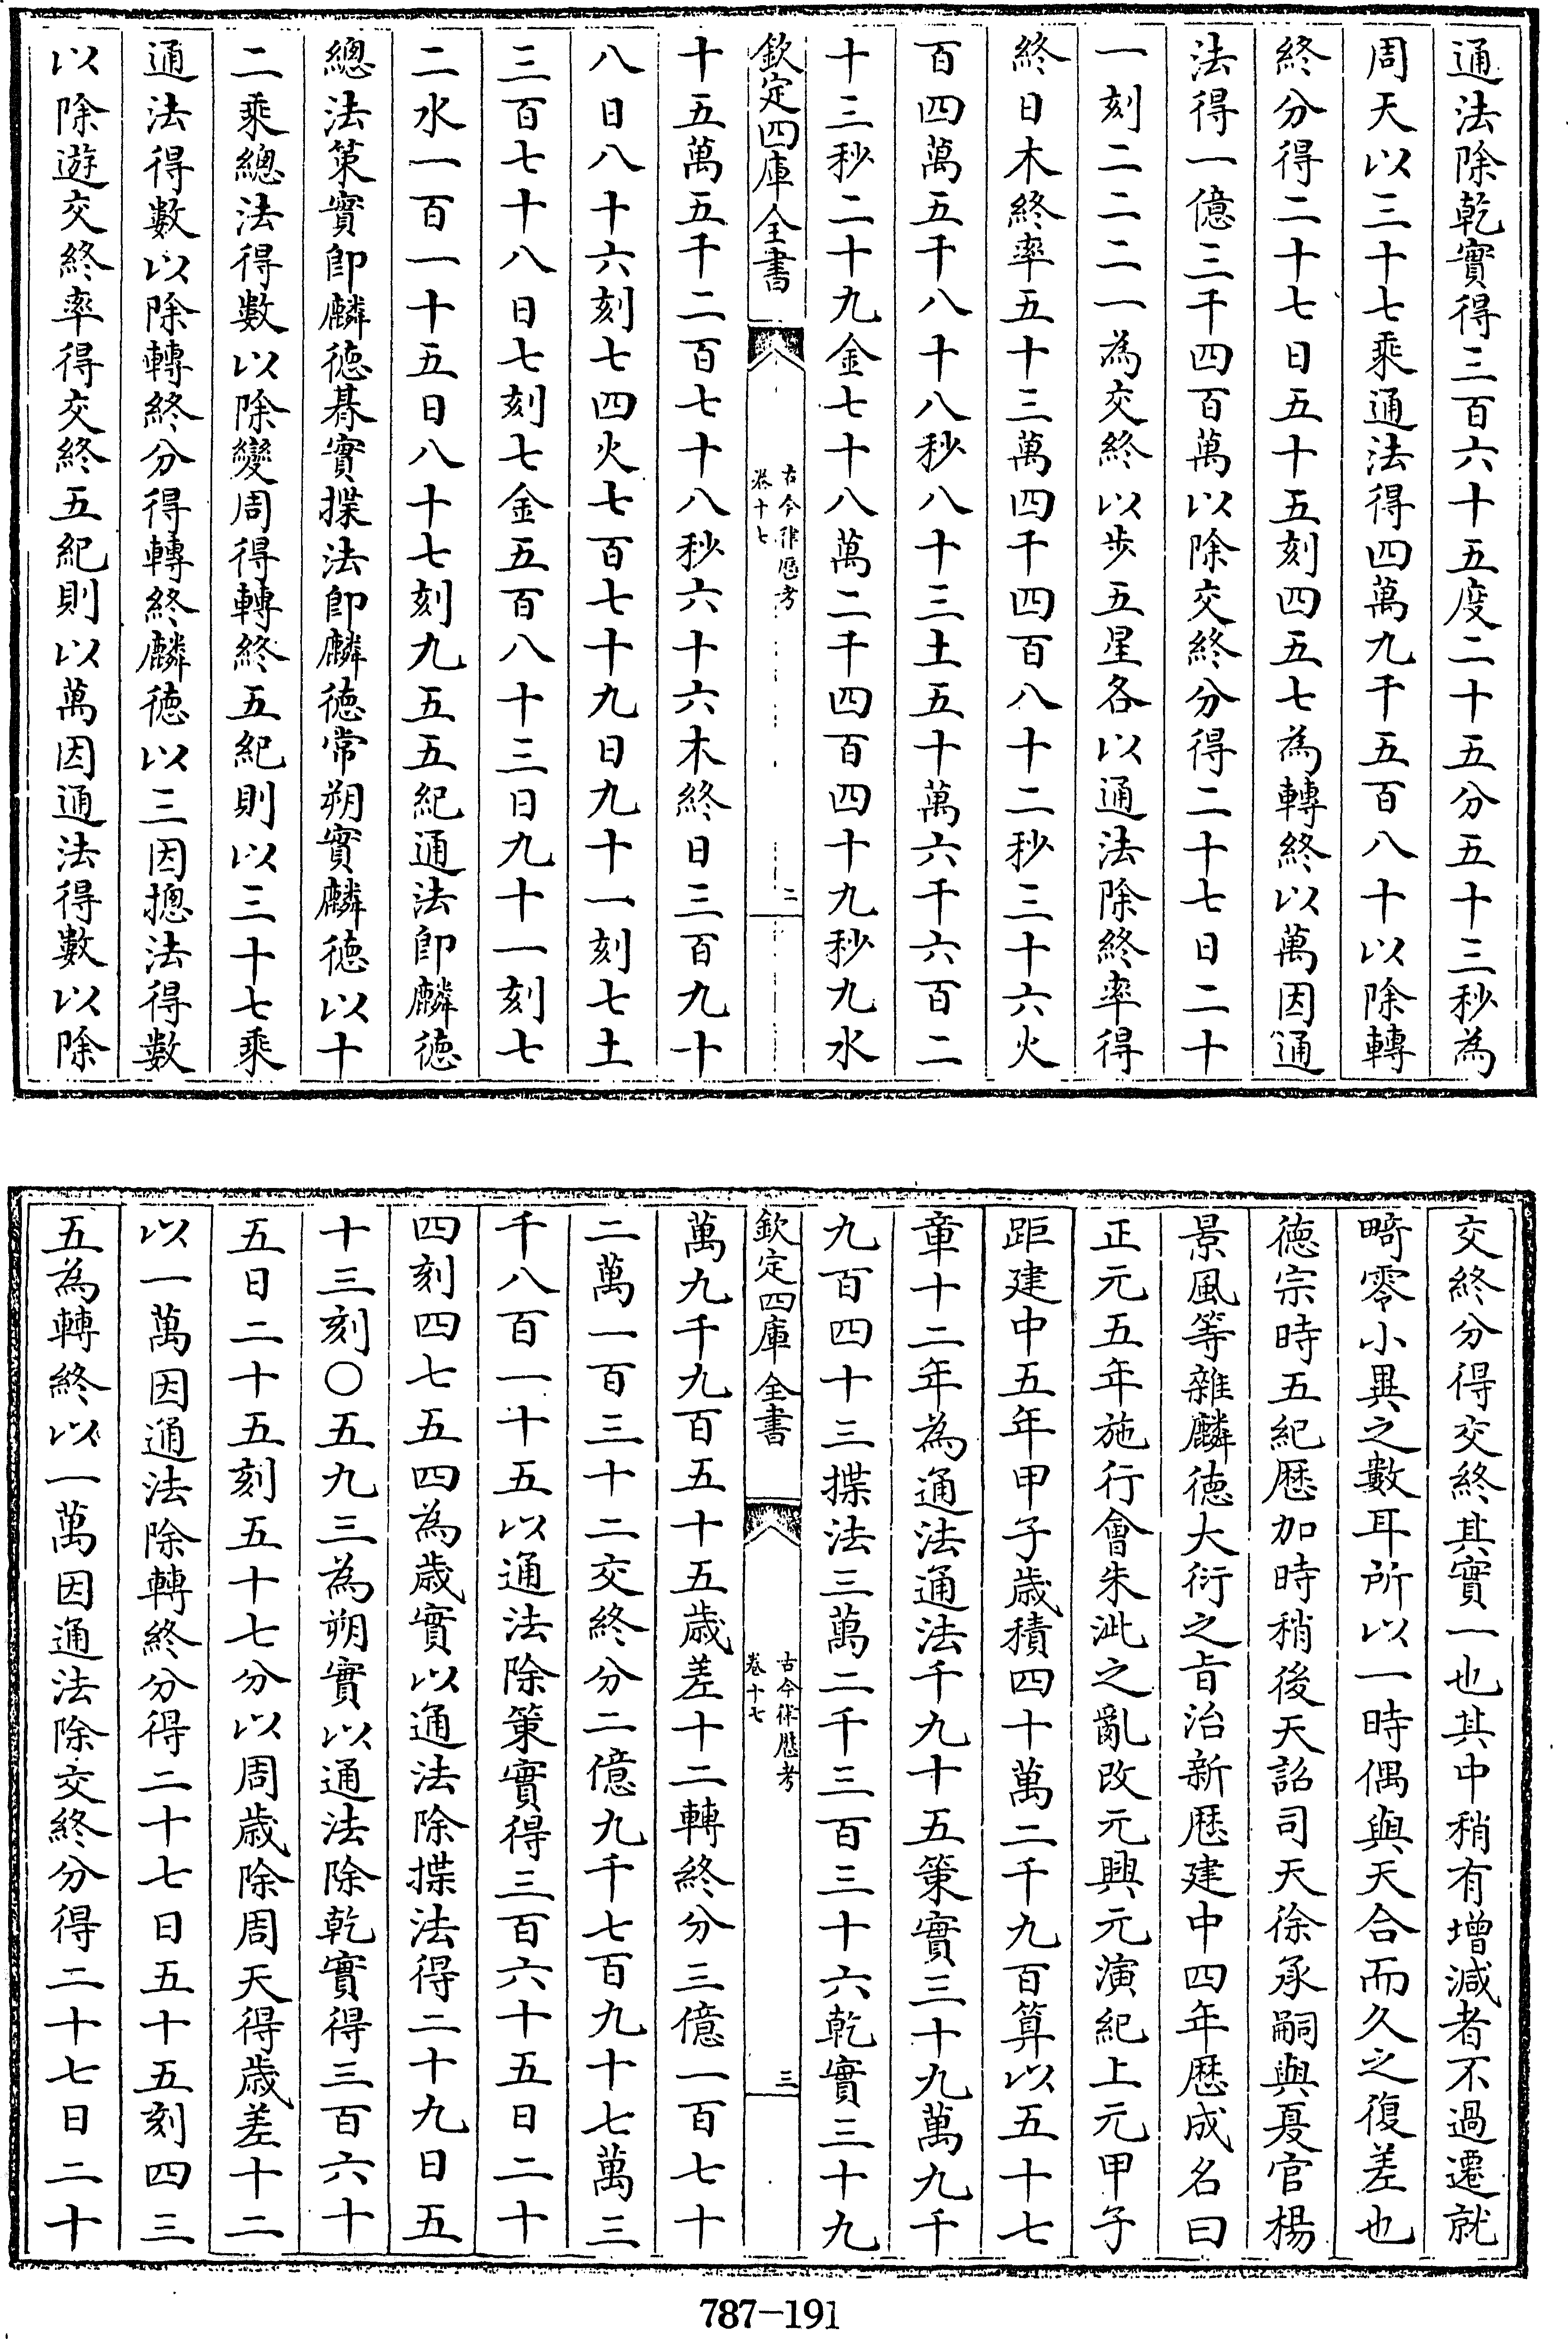 通法除乾實得三百六十五度二十五分五十三秒為
周天以三十七乘通法得四萬九千五百八十以除轉
終分得二十七日五十五刻四五七為轉終以萬因通
法得一億三千四百萬以除交終分得二十七日二十
一刻二二二一為交終以步五星各以通法除終率得
終日木終率五十三萬四千四百八十二秒三十六火
百四萬五千八十八秒八十三土五十萬六千六百二
十三秒二十九金七十八萬二千四百四十九秒九水
欽定四庫全書
古今律厯考
卷十七
二
十五萬五千二百七十八秒六十六木終日三百九十
八日八十六刻七四火七百七十九日九十一刻七土
三百七十八日七刻七金五百八十三日九十一刻七
二水一百一十五日八十七刻九五五紀通法卽麟徳
總法策實卽麟徳朞實揲法卽麟徳常朔實麟徳以十
二乘總法得數以除變周得轉終五紀則以三十七乘
通法得數以除轉終分得轉終麟徳以三因摠法得數
以除遊交終率得交終五紀則以萬因通法得數以除
交終分得交終其實一也其中稍有增減者不過遷就
畸零小異之數耳所以一時偶與天合而久之復差也
徳宗時五紀厯加時稍後天詔司天徐承嗣與夏官楊
景風等雜麟徳大衍之㫖治新厯建中四年厯成名曰
正元五年施行會朱泚之亂改元興元演紀上元甲子
距建中五年甲子歲積四十萬二千九百算以五十七
章十二年為通法通法千九十五策實三十九萬九千
九百四十三揲法三萬二千三百三十六乾實三十九
欽定四庫全書
古今律厯考
卷十七
三
萬九千九百五十五歲差十二轉終分三億一百七十
二萬一百三十二交終分二億九千七百九十七萬三
千八百一十五以通法除策實得三百六十五日二十
四刻四七五四為歲實以通法除揲法得二十九日五
十三刻〇五九三為朔實以通法除乾實得三百六十
五日二十五刻五十七分以周歲除周天得歲差十二
以一萬因通法除轉終分得二十七日五十五刻四三
五為轉終以一萬因通法除交終分得二十七日二十
787-191